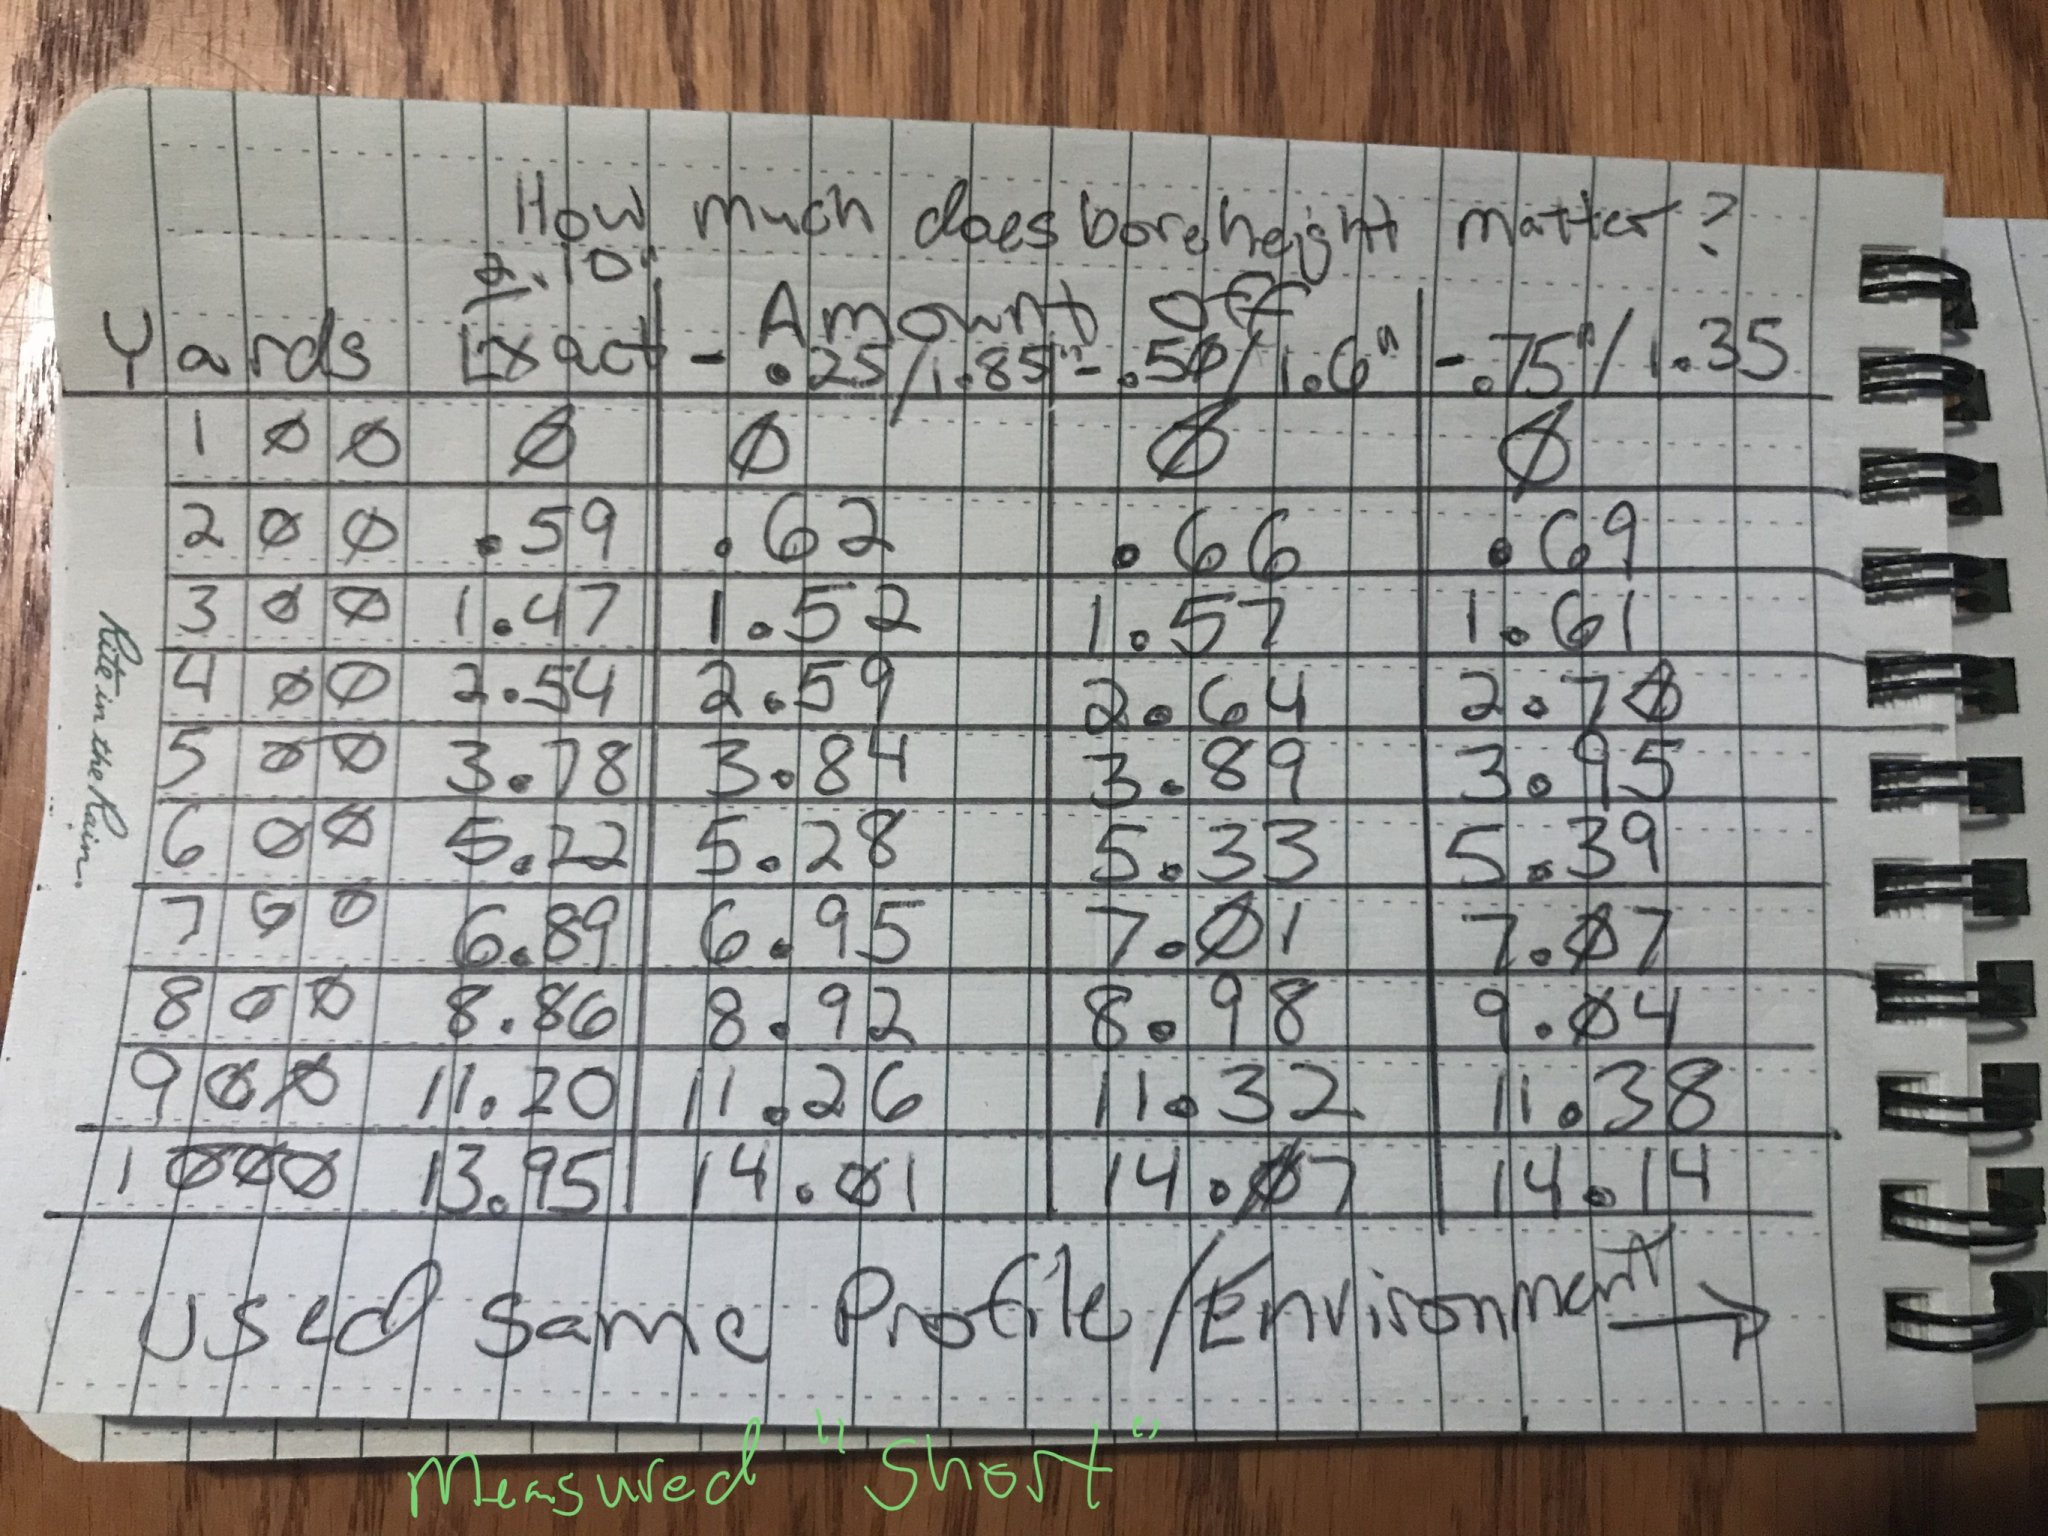 How much does bore height matter?
2.10"
Amount off
Yards Exact -.25/1.85" -.50/1.6" -.75"/1.35
100 0 0 0 0
200 .59 .62 .66 .69
300 1.47 1.52 1.57 1.61
400 2.54 2.59 2.64 2.70
500 3.78 3.84 3.89 3.95
600 5.22 5.28 5.33 5.39
700 6.89 6.95 7.01 7.07
800 8.86 8.92 8.98 9.04
900 11.20 11.26 11.32 11.38
1000 13.95 14.01 14.07 14.14
Used same Profile/Environment →
Rite in the Rain.
Measured "Short"